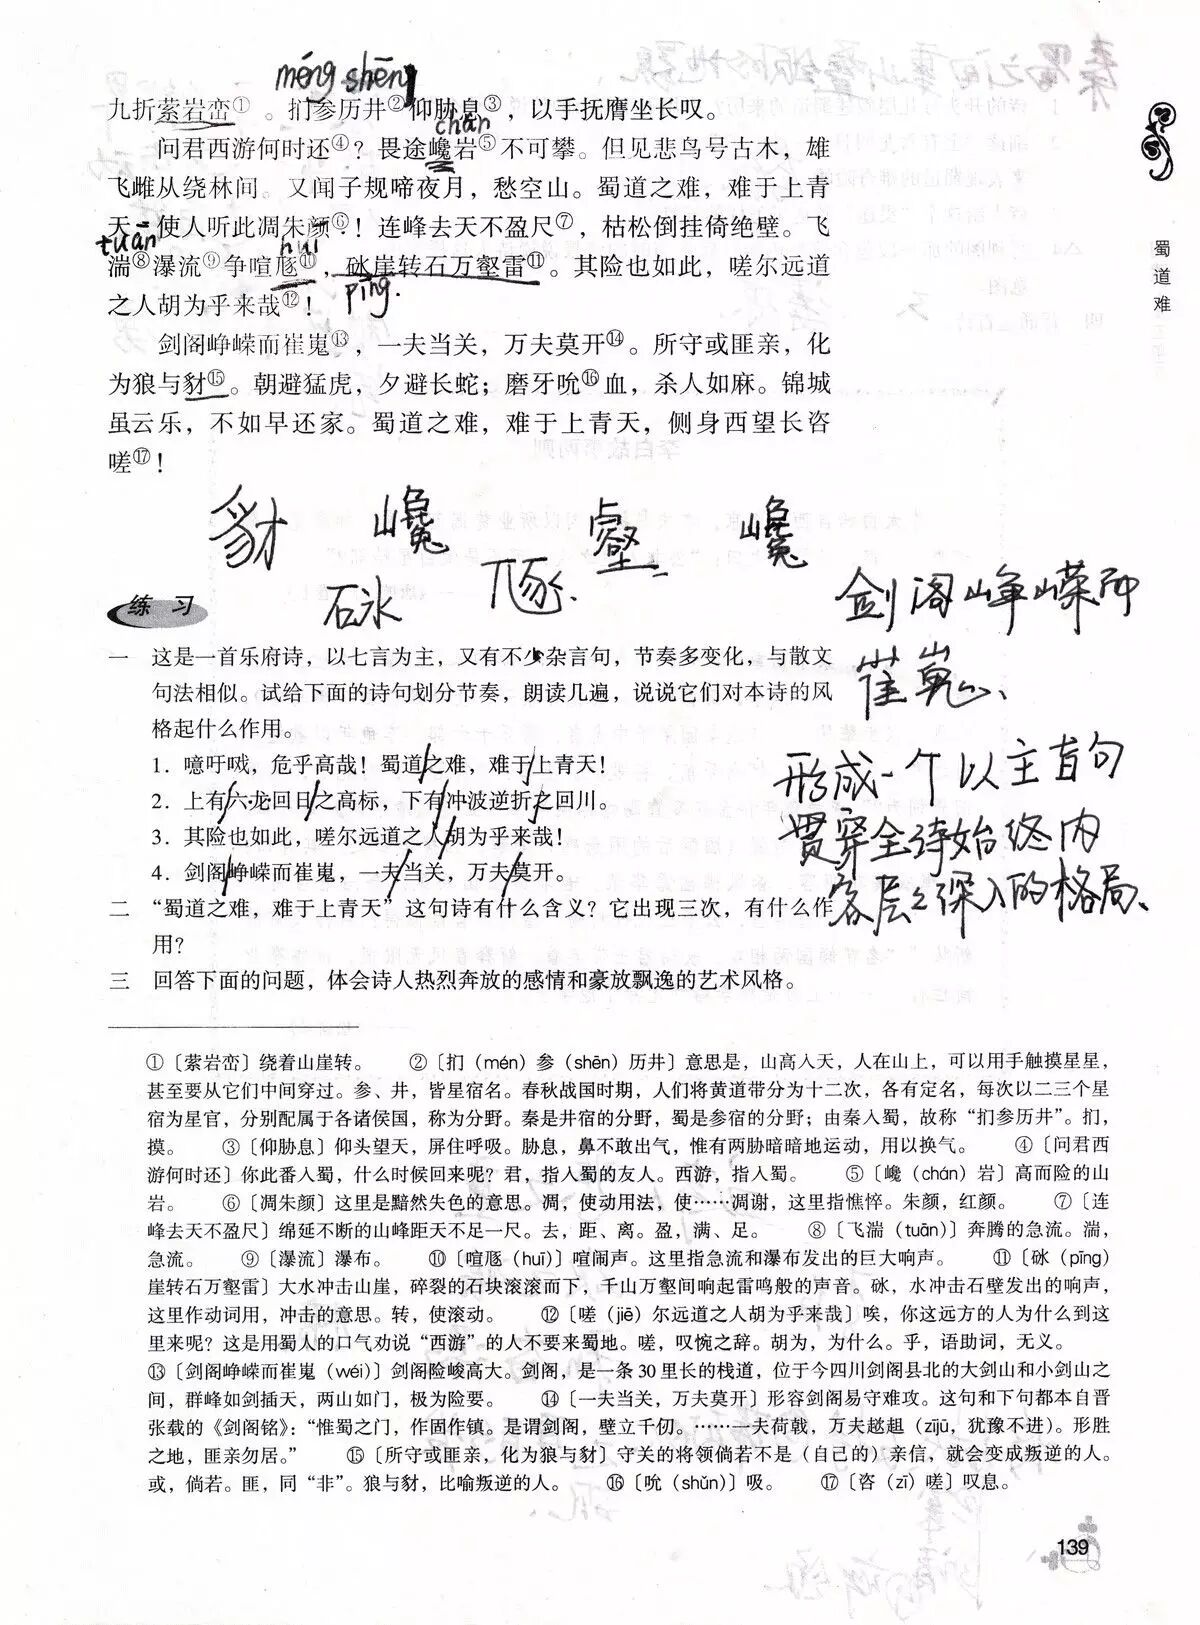 méng shēng
九折萦岩峦① 。扪参历井②仰胁息③，以手抚膺坐长叹。
chán
问君西游何时还④？畏途巉岩⑤不可攀。但见悲鸟号古木，雄
飞雌从绕林间。又闻子规啼夜月，愁空山。蜀道之难，难于上青
天，使人听此凋朱颜⑥！连峰去天不盈尺⑦，枯松倒挂倚绝壁。飞
tuān
huī
湍⑧瀑流⑨争喧豗⑩，砯崖转石万壑雷⑪。其险也如此，嗟尔远道
pīng.
之人胡为乎来哉⑫！
剑阁峥嵘而崔嵬⑬，一夫当关，万夫莫开⑭。所守或匪亲，化
为狼与豺⑮。朝避猛虎，夕避长蛇；磨牙吮⑯血，杀人如麻。锦城
虽云乐，不如早还家。蜀道之难，难于上青天，侧身西望长咨
嗟⑰！
蜀道难
豺 巉 壑 巉
砯 豗
剑阁峥嵘而
崔嵬、
练 习
一 这是一首乐府诗，以七言为主，又有不少杂言句，节奏多变化，与散文
句法相似。试给下面的诗句划分节奏，朗读几遍，说说它们对本诗的风
格起什么作用。
1．噫吁嚱，危乎高哉！蜀道/之难，难于/上青天！
2．上有/六龙回日/之高标，下有/冲波逆折/之回川。
3．其险也如此，嗟尔远道之人/胡为乎来哉！
4．剑阁/峥嵘而崔嵬，一夫/当关，万夫/莫开。
形成一个以主旨句
贯穿全诗始终内
容层层深入的格局、
二 “蜀道之难，难于上青天”这句诗有什么含义？它出现三次，有什么作
用？
三 回答下面的问题，体会诗人热烈奔放的感情和豪放飘逸的艺术风格。
①〔萦岩峦〕绕着山崖转。 ②〔扪（mén）参（shēn）历井〕意思是，山高入天，人在山上，可以用手触摸星星，
甚至要从它们中间穿过。参、井，皆星宿名。春秋战国时期，人们将黄道带分为十二次，各有定名，每次以二三个星
宿为星官，分别配属于各诸侯国，称为分野。秦是井宿的分野，蜀是参宿的分野；由秦入蜀，故称“扪参历井”。扪，
摸。 ③〔仰胁息〕仰头望天，屏住呼吸。胁息，鼻不敢出气，惟有两胁暗暗地运动，用以换气。 ④〔问君西
游何时还〕你此番入蜀，什么时候回来呢？君，指入蜀的友人。西游，指入蜀。 ⑤〔巉（chán）岩〕高而险的山
岩。 ⑥〔凋朱颜〕这里是黯然失色的意思。凋，使动用法，使……凋谢，这里指憔悴。朱颜，红颜。 ⑦〔连
峰去天不盈尺〕绵延不断的山峰距天不足一尺。去，距、离。盈，满、足。 ⑧〔飞湍（tuān）〕奔腾的急流。湍，
急流。 ⑨〔瀑流〕瀑布。 ⑩〔喧豗（huī）〕喧闹声。这里指急流和瀑布发出的巨大响声。 ⑪〔砯（pīng）
崖转石万壑雷〕大水冲击山崖，碎裂的石块滚滚而下，千山万壑间响起雷鸣般的声音。砯，水冲击石壁发出的响声，
这里作动词用，冲击的意思。转，使滚动。 ⑫〔嗟（jiē）尔远道之人胡为乎来哉〕唉，你这远方的人为什么到这
里来呢？这是用蜀人的口气劝说“西游”的人不要来蜀地。嗟，叹惋之辞。胡为，为什么。乎，语助词，无义。
⑬〔剑阁峥嵘而崔嵬（wéi）〕剑阁险峻高大。剑阁，是一条 30 里长的栈道，位于今四川剑阁县北的大剑山和小剑山之
间，群峰如剑插天，两山如门，极为险要。 ⑭〔一夫当关，万夫莫开〕形容剑阁易守难攻。这句和下句都本自晋
张载的《剑阁铭》：“惟蜀之门，作固作镇。是谓剑阁，壁立千仞。……一夫荷戟，万夫趑趄（zījū，犹豫不进）。形胜
之地，匪亲勿居。” ⑮〔所守或匪亲，化为狼与豺〕守关的将领倘若不是（自己的）亲信，就会变成叛逆的人。
或，倘若。匪，同“非”。狼与豺，比喻叛逆的人。 ⑯〔吮（shǔn）〕吸。 ⑰〔咨（zī）嗟〕叹息。
139